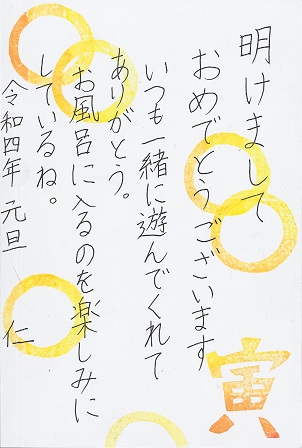 明けまして
おめでとうございます
いつも一緒に遊んでくれて
ありがとう。
お風呂に入るのを楽しみに
しているね。
令和四年 元旦
仁
寅